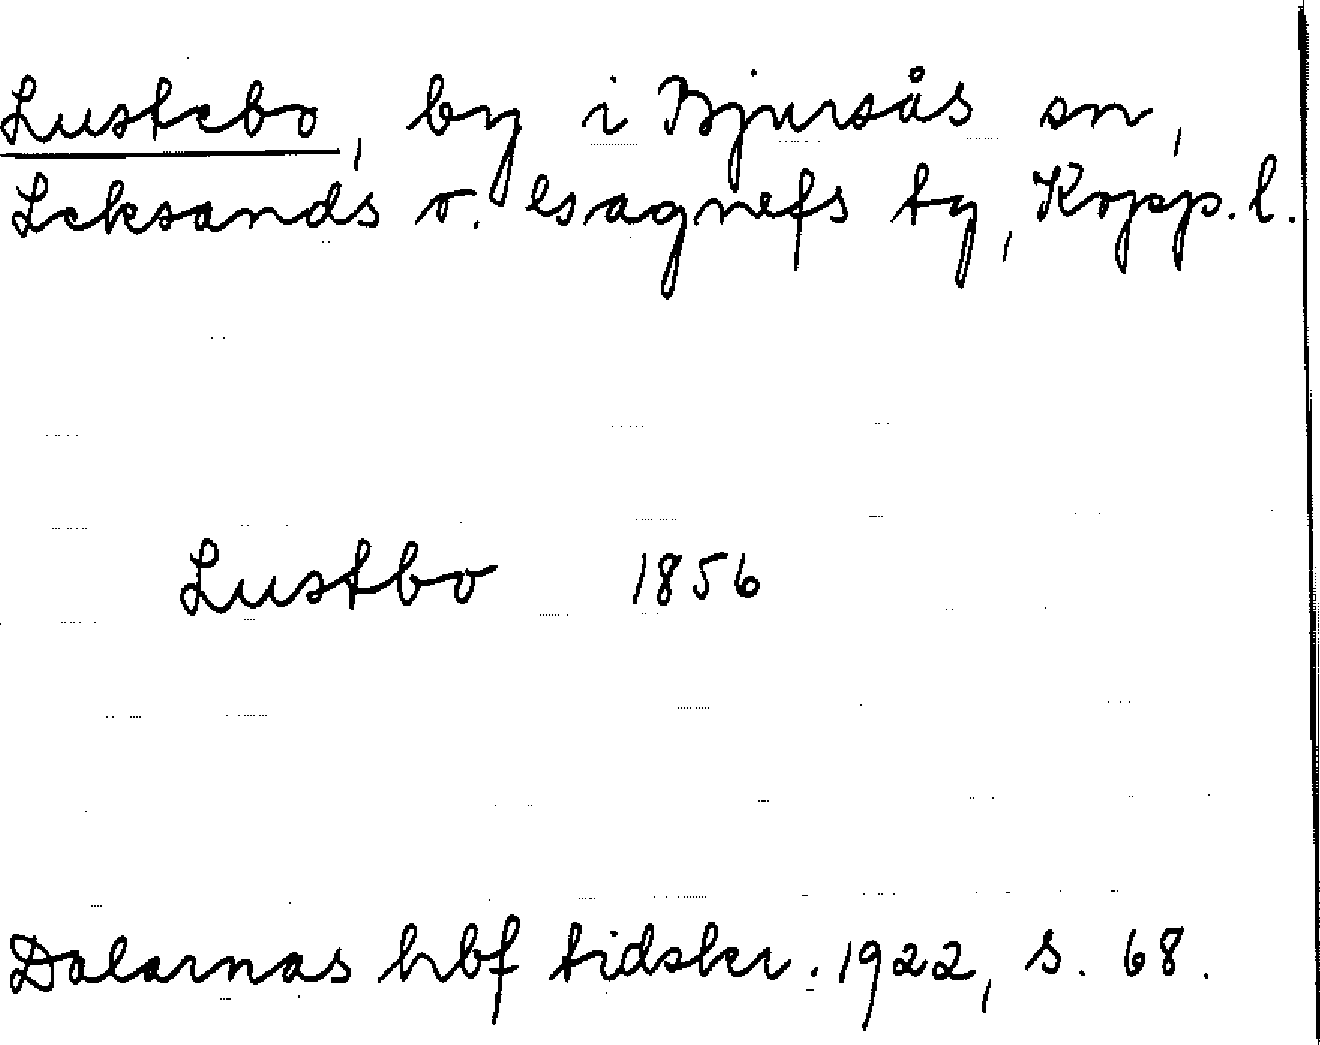 Lustebo, by i Bjursås sn,
Leksands o. Gagnefs tg, Kopp. l.
Lustbo 1856
Dalarnas hbf tidskr. 1922, s. 68.